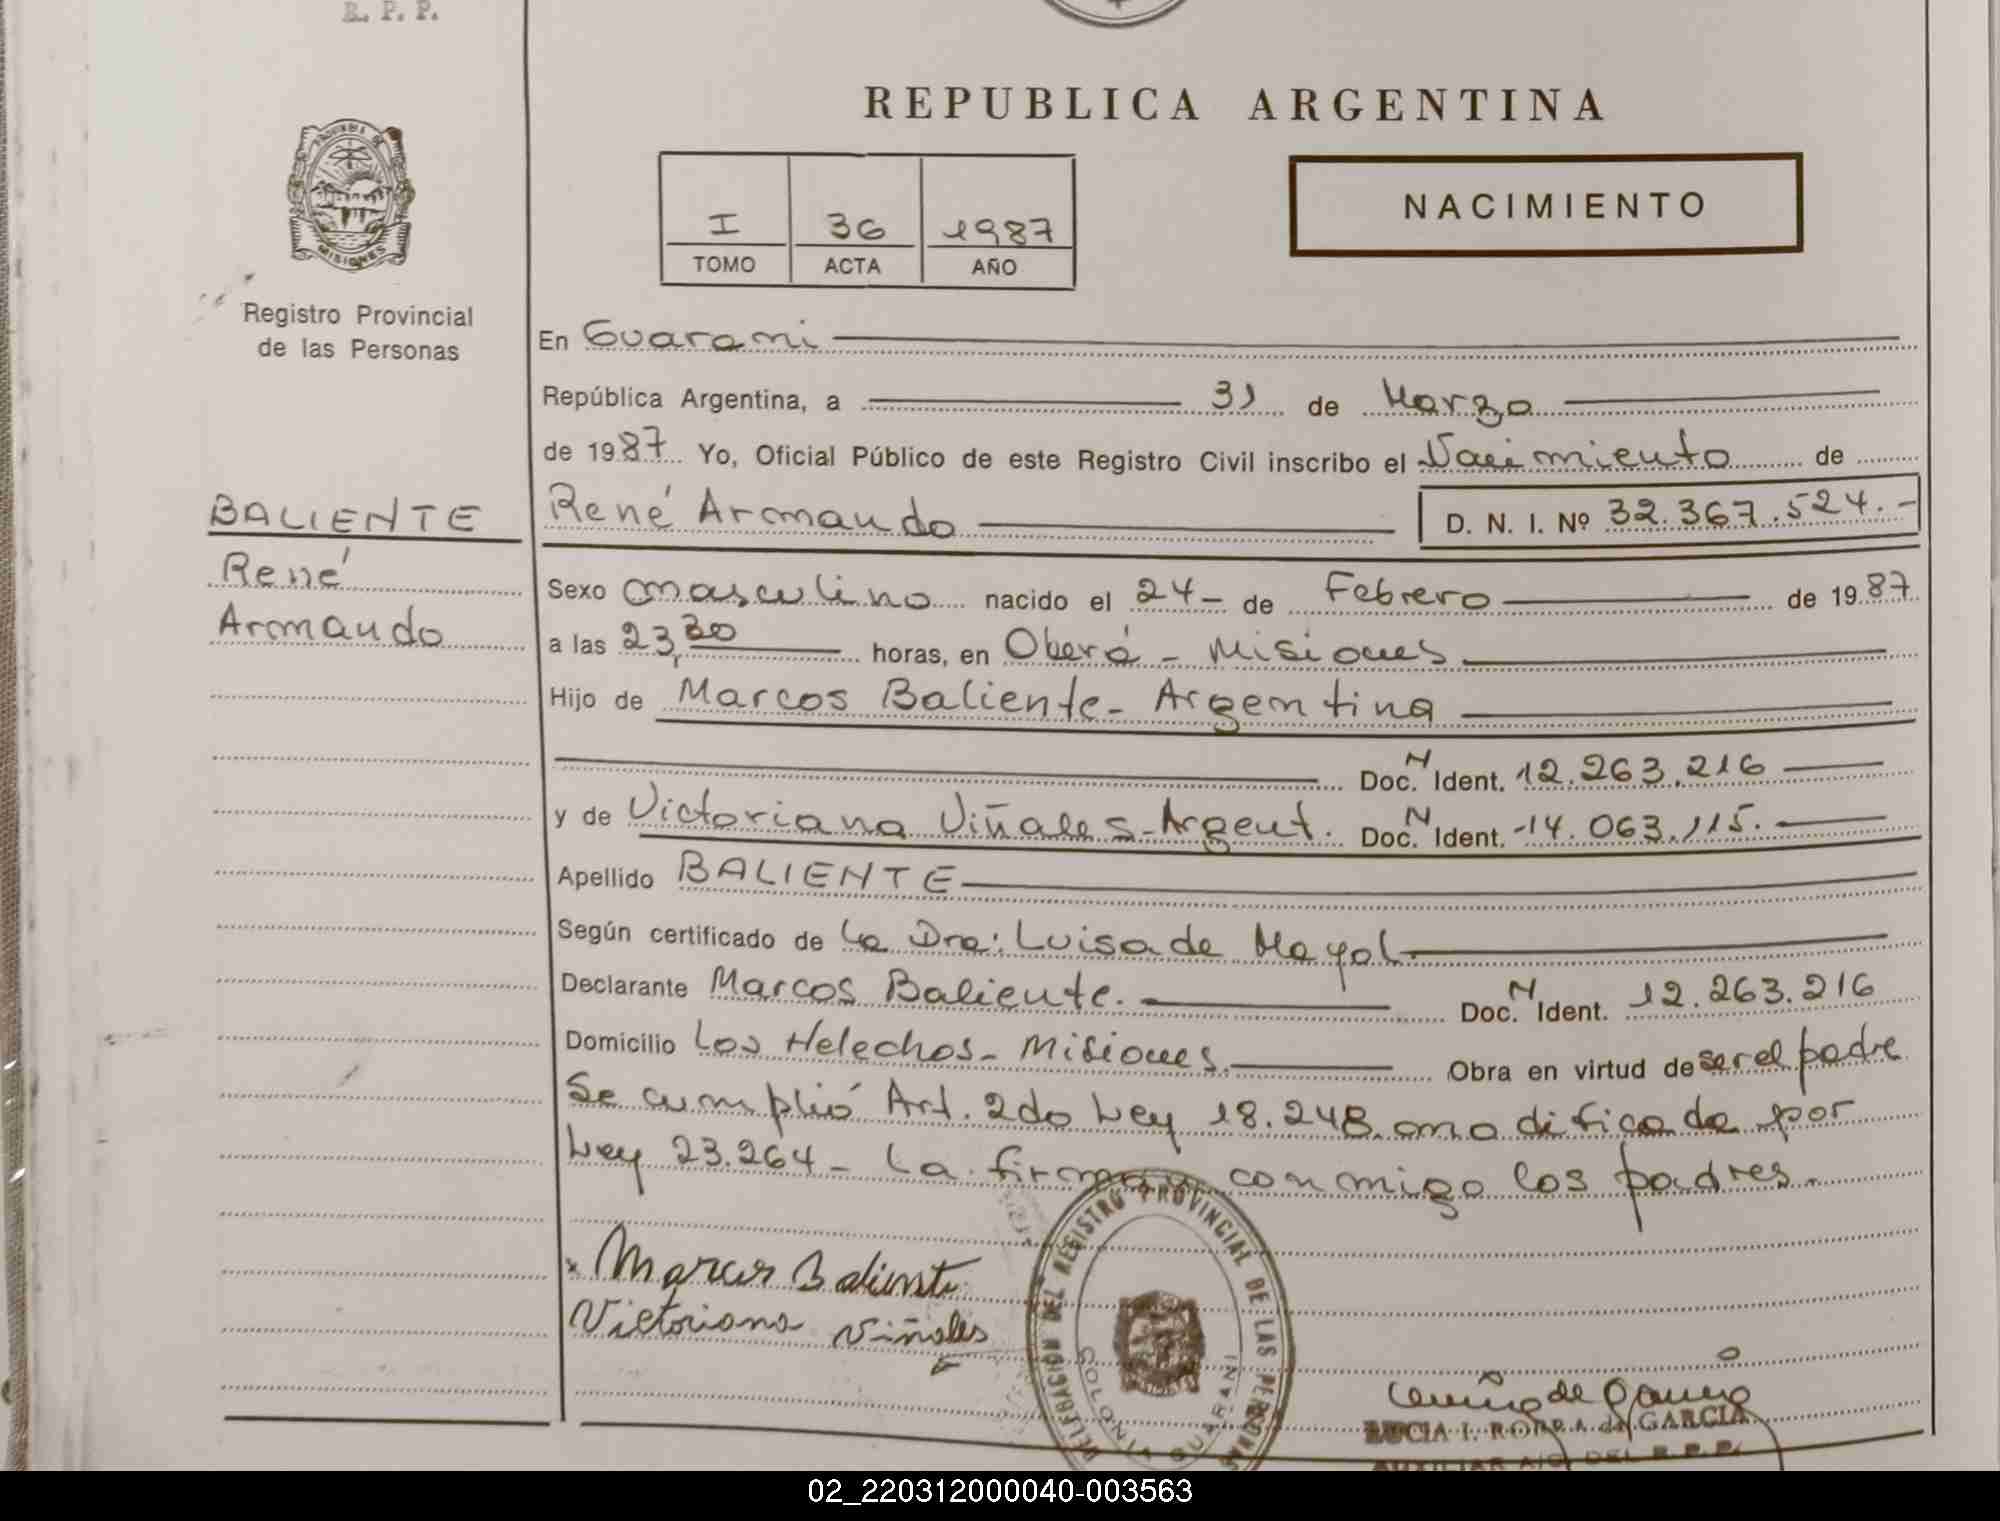 R. P. P.
REPUBLICA ARGENTINA
PROVINCIA DE
MISIONES
Registro Provincial
de las Personas
I 36 1987
TOMO ACTA AÑO
NACIMIENTO
En Guarani
República Argentina, a 31 de Marzo
de 1987 Yo, Oficial Público de este Registro Civil inscribo el Nacimiento de
BALIENTE
René
Armando
René Armando D. N. I. Nº 32.367.524.-
Sexo masculino nacido el 24- de Febrero de 1987
a las 23,30 horas, en Oberá - Misiones
Hijo de Marcos Baliente - Argentina
Doc. N Ident. 12.263.216
y de Victoriana Viñales - Argent. Doc. N Ident. -14.063.115.
Apellido BALIENTE
Según certificado de La Dra: Luisa de Mayol
Declarante Marcos Baliente. Doc. N Ident. 12.263.216
Domicilio Los Helechos - Misiones. Obra en virtud de ser el padre
Se cumplió Art. 2do Ley 18.248 modificada por
Ley 23.264 - La firman conmigo los padres.
x Marcos Baliente
Victoriana Viñales
DELEGACIÓN DEL REGISTRO PROVINCIAL DE LAS PERSONAS
COLONIA GUARANI
LUCIA I. de GARCIA
AUXILIAR A/C DEL R.P.P.
02_220312000040-003563